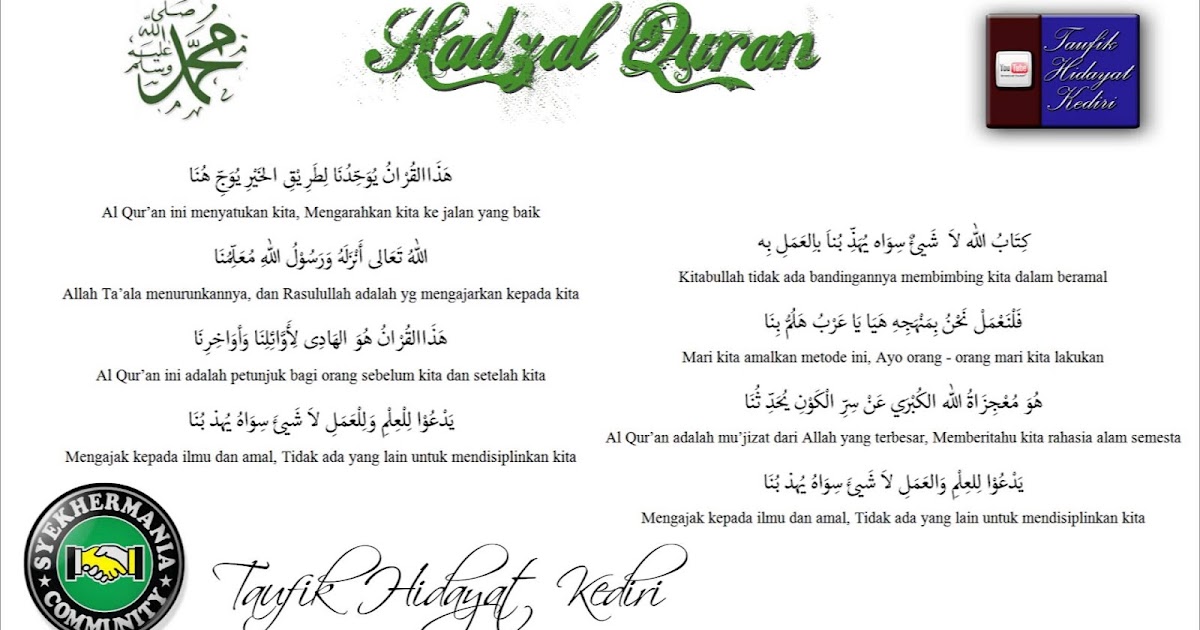 صلى الله عليه وسلم
محمد
Hadzal Quran
You Tube
Taufik
Hidayat
Kediri
هَذَاالقُرْانُ يُوَحِّدُنَا لِطَرِيْقِ الخَيْرِ يُوَجِّ هُنَا
Al Qur'an ini menyatukan kita, Mengarahkan kita ke jalan yang baik
اللهُ تَعَالى أَنْزَلَهُ وَرَسُوْلُ اللهِ مُعَلِّمُنَا
Allah Ta'ala menurunkannya, dan Rasulullah adalah yg mengajarkan kepada kita
هَذَاالقُرْانُ هُوَ الهَادِى لِأَوَّائِلِنَا وَأَوَاخِرِنَا
Al Qur'an ini adalah petunjuk bagi orang sebelum kita dan setelah kita
يَدْعُوْا لِلْعِلْمِ وَلِلْعَمَلِ لاَ شَيْئَ سِوَاهُ يُهذْ بُنَا
Mengajak kepada ilmu dan amal, Tidak ada yang lain untuk mendisiplinkan kita
كِتَابُ الله لاَ شَيْئٌ سِوَاه يُهَذِّ بُناَ بِالعَمَلِ بِه
Kitabullah tidak ada bandingannya membimbing kita dalam beramal
فَلْنَعْمَلْ نَحْنُ بِمَنْهَجِهِ هَيَا يَا عَرْبُ هَلُمُّ بِنَا
Mari kita amalkan metode ini, Ayo orang - orang mari kita lakukan
هُوَ مُعْجِزَاةُ الله الكُبْرَي عَنْ سِرِّ الْكَوْنِ يُحَدِّ ثُنَا
Al Qur'an adalah mu'jizat dari Allah yang terbesar, Memberitahu kita rahasia alam semesta
يَدْعُوْا لِلعِلْمِ وَالعَمَلِ لاَ شَيْئَ سِوَاهُ يُهذْ بُنَا
Mengajak kepada ilmu dan amal, Tidak ada yang lain untuk mendisiplinkan kita
SYEKHERMANIA
COMMUNITY
Taufik Hidayat Kediri